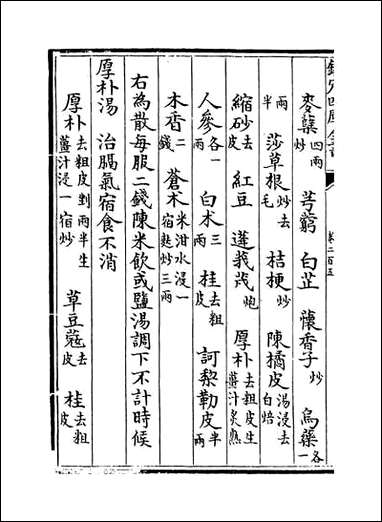 麥蘖四兩炒 芎藭 白芷 懷香子炒 烏藥各一
兩半 莎草根炒去毛 桔梗炒 陳橘皮湯浸去白焙
縮砂去皮 紅豆 蓬莪茂炮 厚朴去粗皮生薑汁炙熟
人參各一兩 白朮三兩 桂去粗皮 訶黎勒皮半兩
木香二錢 蒼朮米泔水浸一宿麩炒三兩
右為散每服二錢陳米飲或鹽湯調下不計時候
厚朴湯 治膈氣宿食不消
厚朴去粗皮剉兩半生薑汁浸一宿炒 草豆蔻去皮 桂去粗皮